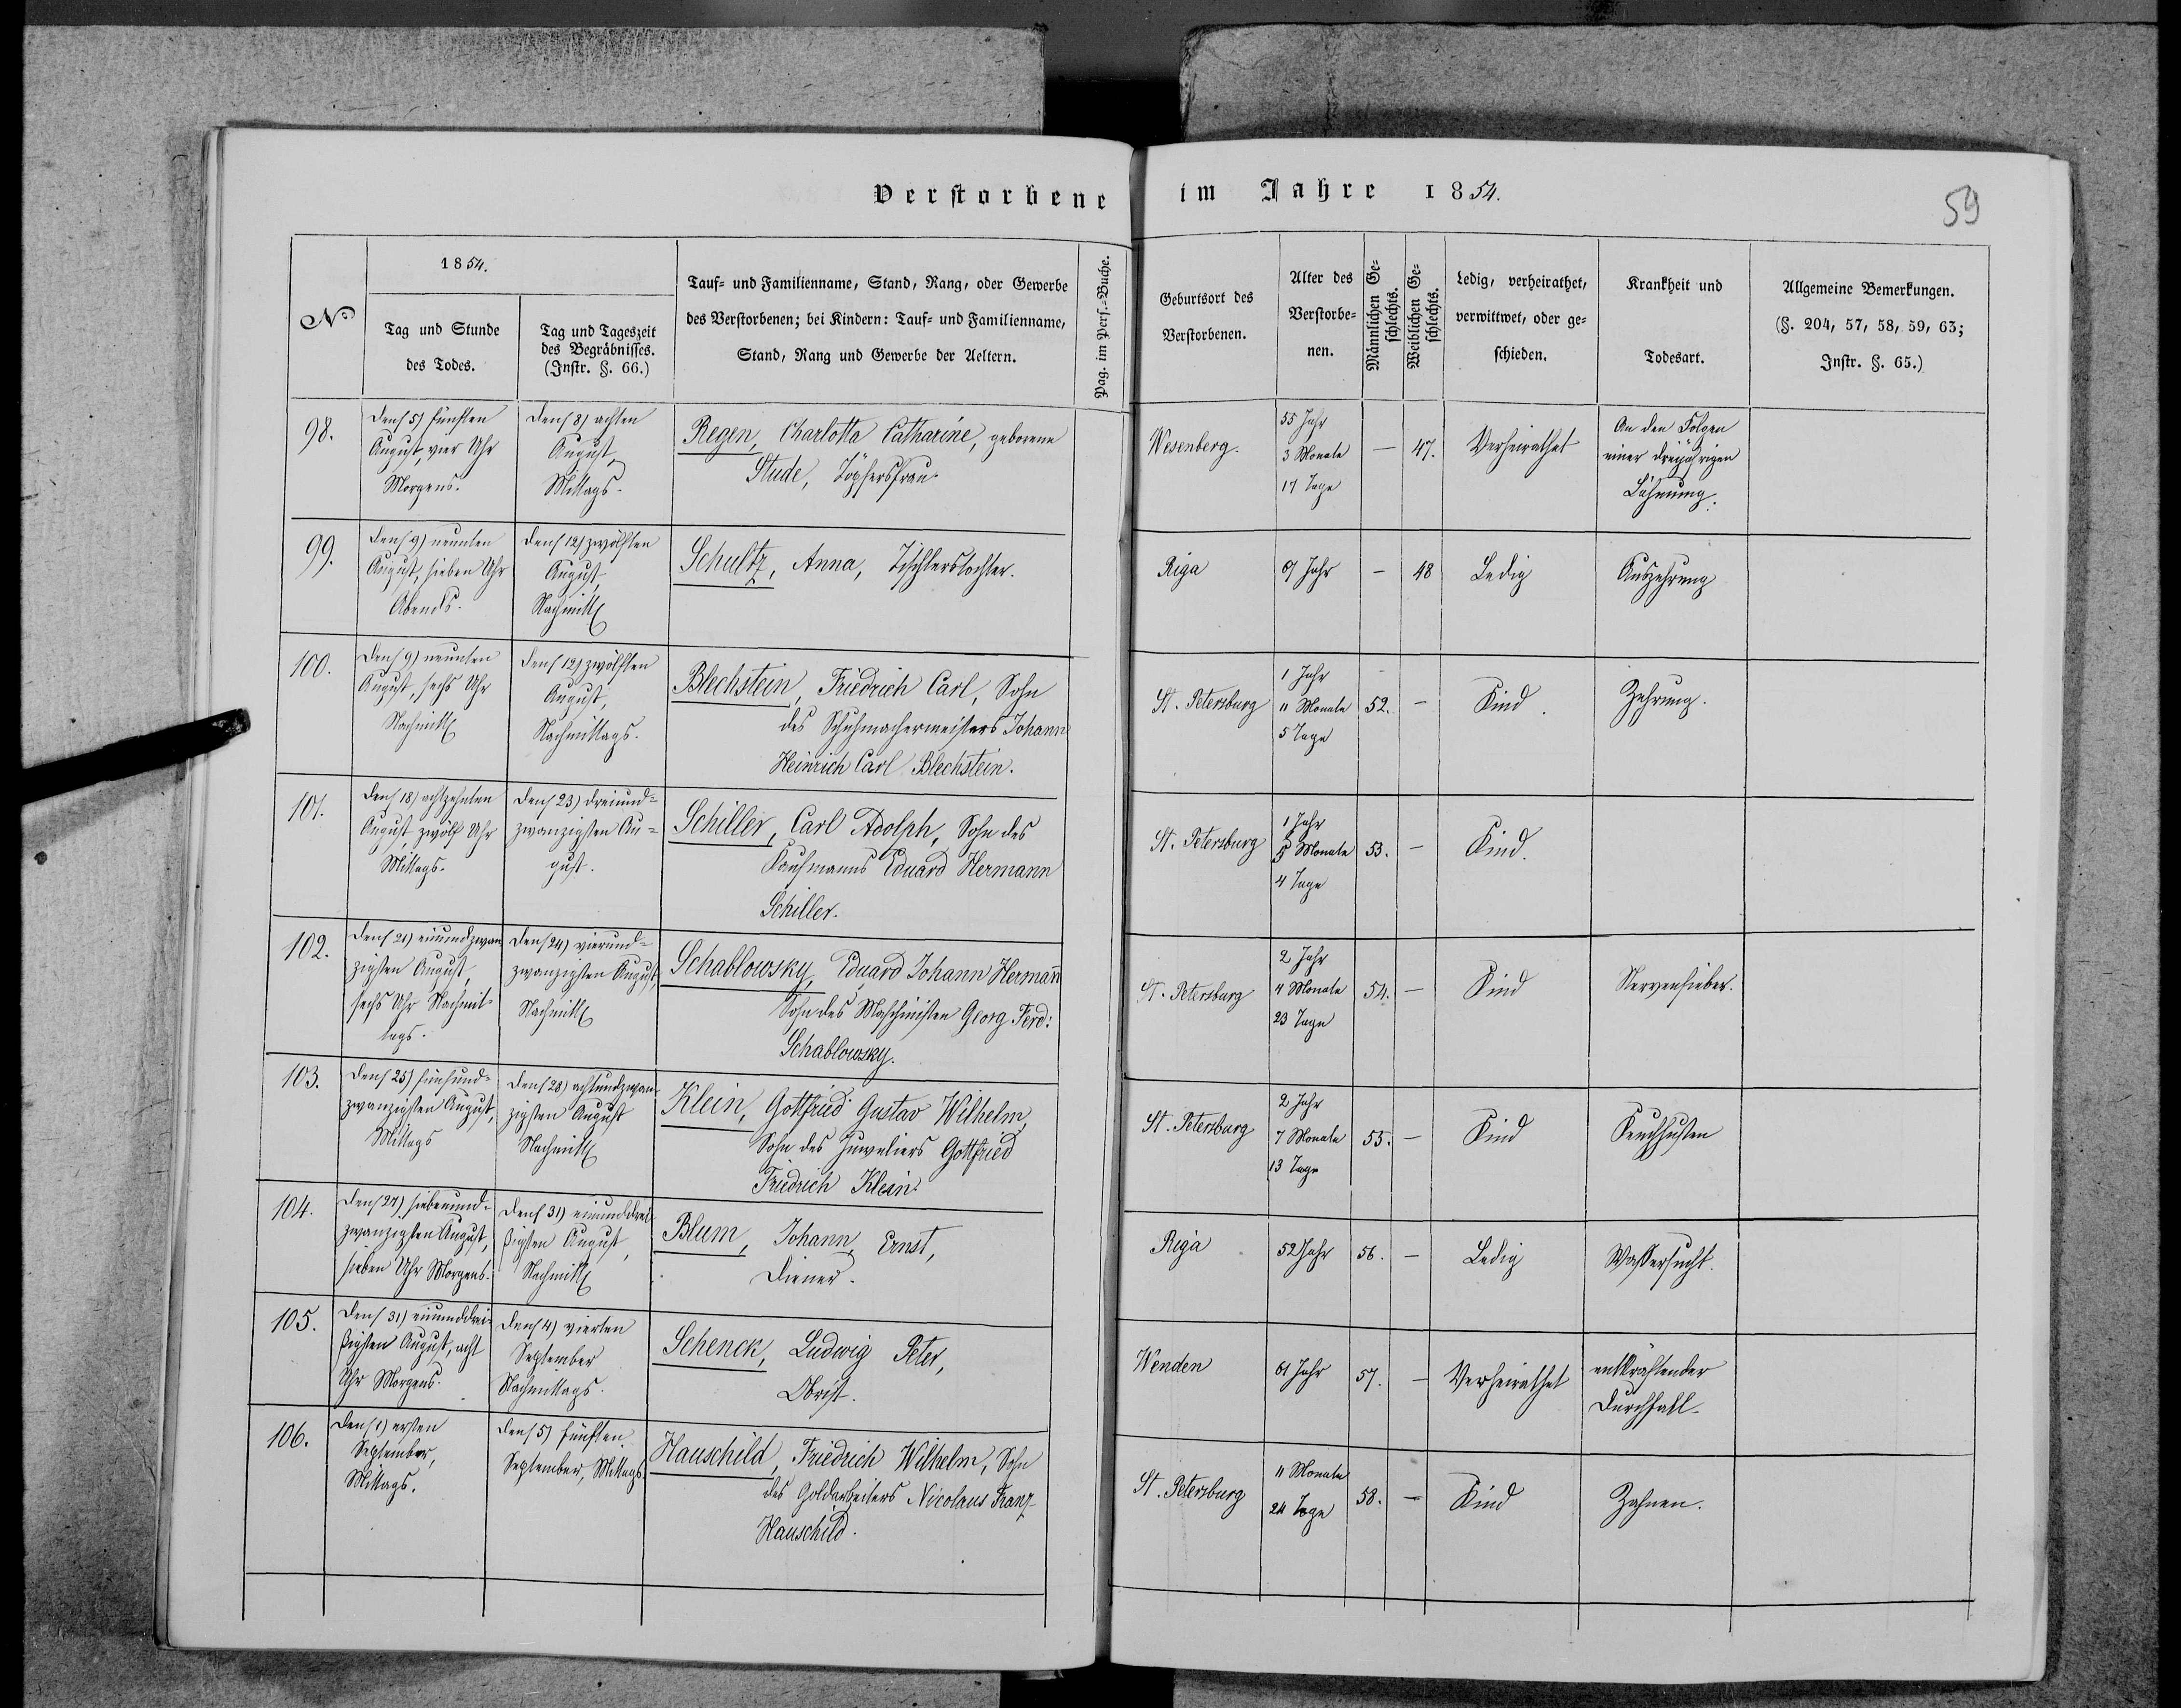 Verstorbene im Jahre 1854.
59
No
1854.
Tag und Stunde
des Todes.
Tag und Tageszeit
des Begräbnisses.
(Instr. §. 66.)
Tauf- und Familienname, Stand, Rang, oder Gewerbe
des Verstorbenen; bei Kindern: Tauf- und Familienname,
Stand, Rang und Gewerbe der Aeltern.
Pag. im Pers.-Buche.
Geburtsort des
Verstorbenen.
Alter des
Verstorbe-
nen.
Männlichen Ge-
schlechts.
Weiblichen Ge-
schlechts.
Ledig, verheirathet,
verwittwet, oder ge-
schieden.
Krankheit und
Todesart.
Allgemeine Bemerkungen.
(§. 204, 57, 58, 59, 63;
Instr. §. 65.)
98.
Den (5) fünften
August, vier Uhr
Morgens.
Den (8) achten
August,
Mittags.
Regen, Charlotta Catharine, geborene
Stude, Töpfersfrau.
Wesenberg.
55 Jahr
3 Monate
17 Tage
—
47.
Verheirathet
An den Folgen
einer dreijährigen
Lähmung.
99.
Den (9) neunten
August, sieben Uhr
Abends.
Den (12) zwölften
August,
Nachmitt
Schultz, Anna, Tischlerstochter.
Riga
9 Jahr
—
48
Ledig
Auszehrung
100.
Den (9) neunten
August, sechs Uhr
Nachmitt
Den (12) zwölften
August,
Nachmittags.
Blechstein, Friedrich Carl, Sohn
des Schuhmachermeisters Johann
Heinrich Carl Blechstein.
St. Petersburg
1 Jahr
11 Monate
5 Tage
52.
—
Kind.
Zehrung.
101.
Den (18) achtzehnten
August, zwölf Uhr
Mittags.
Den (23) dreiund-
zwanzigsten Au-
gust.
Schiller, Carl Adolph, Sohn des
Kaufmanns Eduard Hermann
Schiller.
St. Petersburg
1 Jahr
5 Monate
4 Tage
53.
—
Kind.
102.
Den (21) einundzwan
zigsten August,
sechs Uhr Nachmit
tags.
Den (24) vierund-
zwanzigsten August,
Nachmitt
Schablowsky, Eduard Johann Hermann
Sohn des Maschinisten Georg Ferd:
Schablowsky.
St. Petersburg
2 Jahr
4 Monate
23 Tage
54.
—
Kind
Nervenfieber.
103.
Den (25) fünfund-
zwanzigsten August,
Mittags
Den (28) achtundzwan-
zigsten August
Nachmitt
Klein, Gottfried Gustav Wilhelm,
Sohn des Juweliers Gottfried
Friedrich Klein.
St. Petersburg
2 Jahr
7 Monate
13 Tage
55.
—
Kind
Keuchhusten
104.
Den (27) siebenund-
zwanzigsten August,
sieben Uhr Morgens.
Den (31) einunddrei-
ßigsten August,
Nachmitt
Blum, Johann Ernst,
Diener.
Riga
52 Jahr
56.
—
Ledig
Waßersucht.
105.
Den (31) einunddrei-
ßigsten August, acht
Uhr Morgens.
Den (4) vierten
September
Nachmittags.
Schenck, Ludwig Peter,
Obrist.
Wenden
61 Jahr
57.
—
Verheirathet
entkräftender
Durchfall.
106.
Den (1) ersten
September,
Mittags.
Den (5) fünften
September, Mittags
Hauschild, Friedrich Wilhelm, Sohn
des Goldarbeiters Nicolaus Franz
Hauschild.
St. Petersburg
11 Monate
24 Tage
58.
—
Kind
Zahnen.